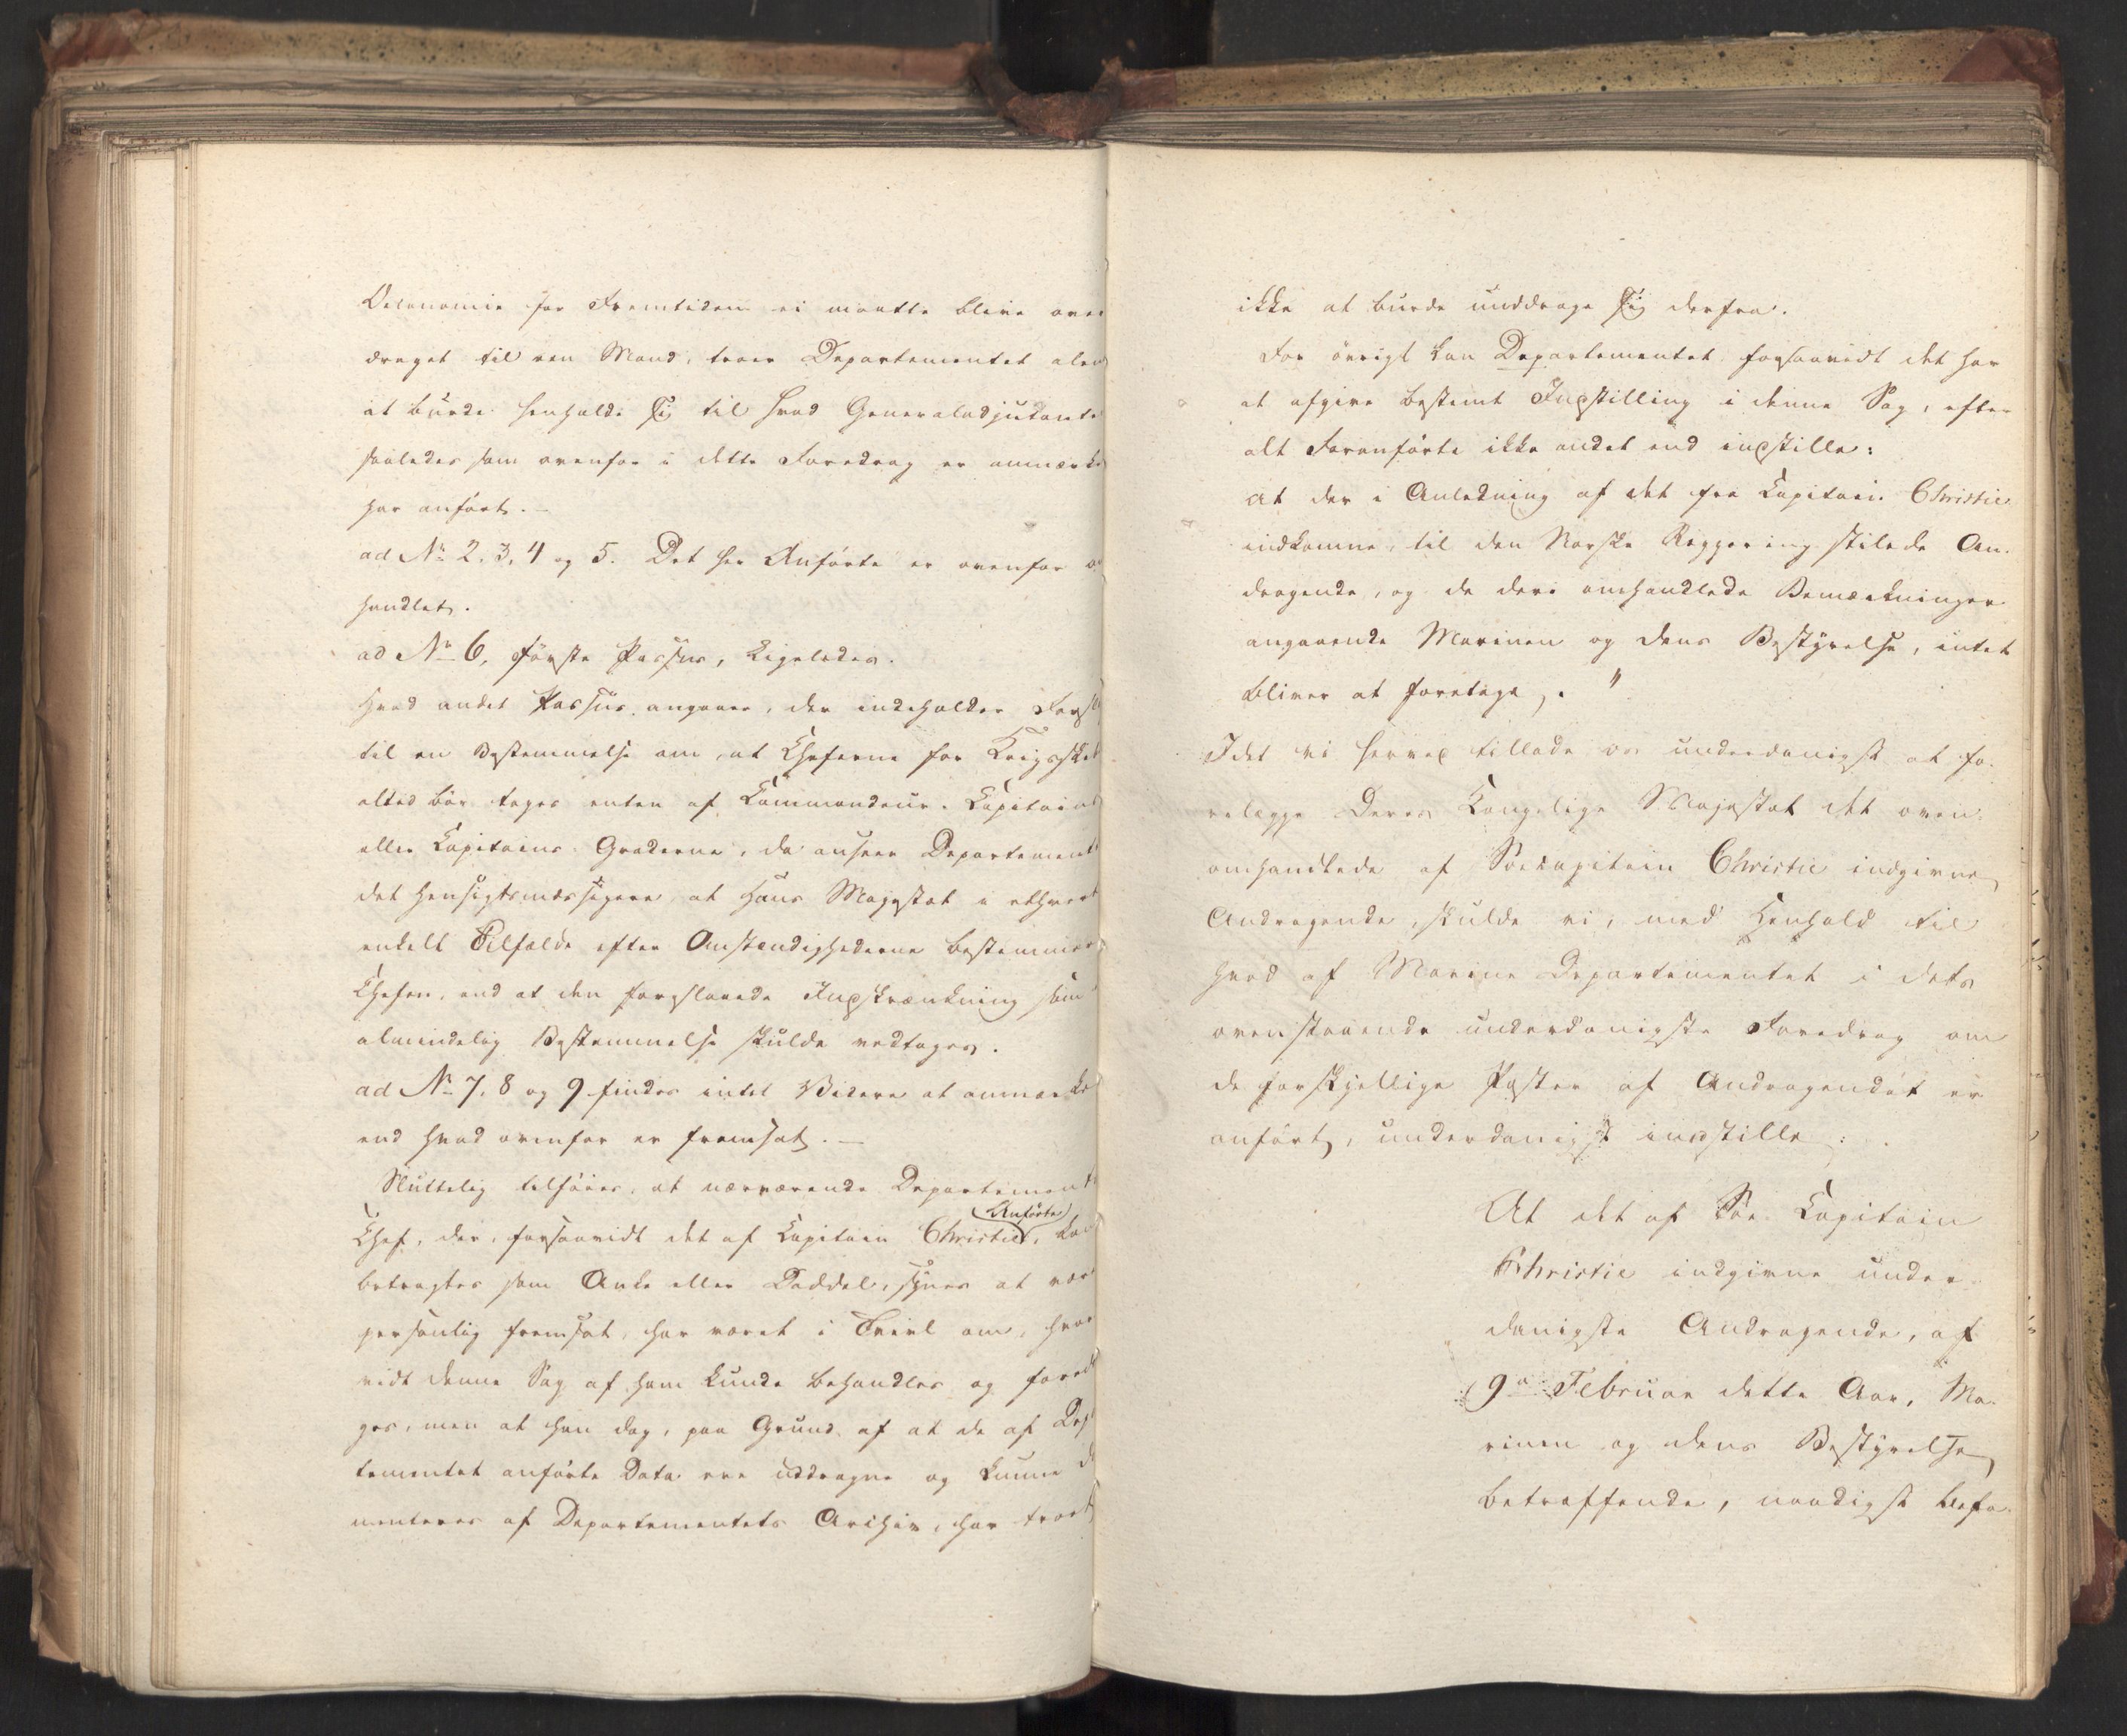 Oeconomie for Fremtiden ei maatte blive over
draget til een Mand, troer Departementet alene
at burde henholde sig til hvad Generaladjutanten
saaledes som ovenfor i dette Foredrag er anmærket
har anført. –
ad No 2, 3, 4 og 5. Det her Anførte er ovenfor
handlet.
ad No 6, første Passus, Ligeledes.
Hvad andet Passus angaaer, der indeholder Forsl
til en Bestemmelse om, at Cheferne for Krigsskib
altid bør tages enten af Commandeur-Capitains
eller Capitains Graderne, da anseer Departementet
det hensigtsmæssigere, at Hans Majestæt i ethvert
enkelt Tilfælde efter Omstændighederne bestemmer
Chefen, end at den foreslaaede Indskrænkning som
almindelig Bestemmelse skulde vedtages.
ad No 7, 8 og 9 findes intet Videre at anmærke
end hvad ovenfor er fremsat. –
Sluttelig tilføies, at nærværende Departements
Anførte
Chef, der, forsaavidt det af Capitain Christie, kan
betragtes som Anke eller Daddel, synes at være
personlig fremsat, har været i Tvivl om, hvor
vidt denne Sag af ham kunde behandles og fored
ges, men at han dog, paa Grund af at de af Dep
tementet anførte Data ere uddragne og kunne d
menteres af Departementets Archiv, har troet
ikke at burde unddrage sig derfra.
For øvrigt kan Departementet, forsaavidt det har
at afgive bestemt Indstilling i denne Sag, efter
alt Foranførte ikke andet end indstille:
at der i Anledning af det fra Capitain Christie
indkomne, til den Norske Regjering stilede An-
dragende, og de deri omhandlede Bemærkninger
angaaende Marinen og dens Bestyrelse, intet
bliver at foretage. "
Idet vi herved tillade os underdanigst at fo-
relægge Deres Kongelige Majestæt det oven-
omhandlede af Søecapitain Christie indgivne
Andragende, skulde vi, med Henhold til
hvad af Marine Departementet i dets
ovenstaaende underdanigste Foredrag om
de forskjellige Poster af Andragendet er
anført, underdanigst indstille:
At det af Søe Capitain
Christie indgivne under-
danigste Andragende, af
9de Februar dette Aar, Ma-
rinen og dens Bestyrelse
betræffende, naadigst befa-